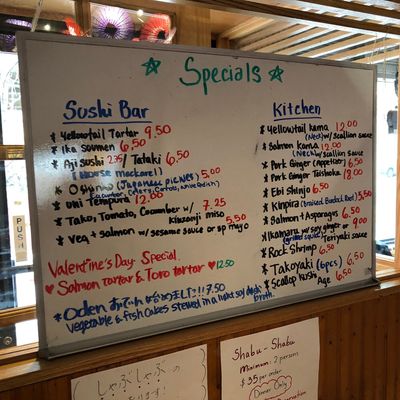 Specials
Sushi Bar
* Yellowtail Tartar 9.50
* Ika Soumen 6.50
* Aji Sushi 2.35 / Tataki 6.50
(Horse mackerel)
(Japanese pickles) 5.00
* Uni Tempura 12.00
* Tako, Tomato, Cucumber w/ 7.25
Kinzanji miso
* Veg + Salmon w/ sesame sauce or sp mayo 5.50
Valentine's Day Special
♥ Salmon tartar & Toro tartar ♥ 12.50
* Oden おでん はじめました!! 7.50
Vegetable & fish cakes stewed in light soy dashi broth.
Kitchen
* Yellowtail Kama 12.00
(Neck) w/ scallion sauce
* Salmon Kama 12.00
(Neck) w/ scallion sauce
* Pork Ginger (Appetizer) 6.50
* Pork Ginger Teishoku 18.00
* Ebi Shinjo 6.50
* Kinpira (Braised Burdock Root) 5.50
* Salmon + Asparagus 6.50
* Ikamaru w/ soy ginger or 9.00
(grilled squid) Teriyaki sauce
* Rock Shrimp 6.50
* Takoyaki (6pcs) 6.50
* Scallop Kushi Age 6.50
PUSH
しゃぶしゃぶの
Shabu-Shabu
Minimum: 2 persons
$35 per order
Dinner Only